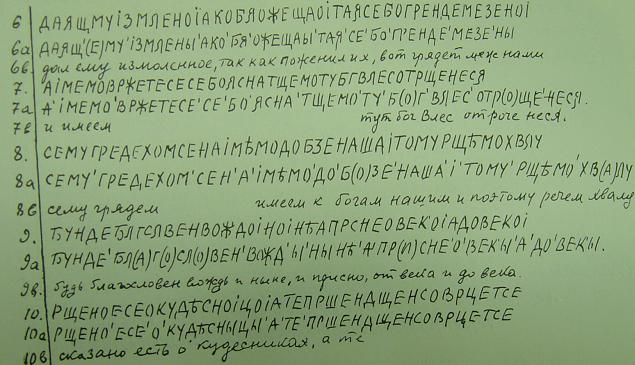 6 ДАЯЩМУІЗМЛЕНОІАКОБЯОЖЕЩАОІТАЯСЕБОГРЕНДЕМЕЗЕНОІ
6а ДАЯЩ'(Е)МУ'ІЗМЛЕНЫ'АКО'БЯ'ОЖЕЩАЫ'ТАЯ'СЕ'БО'ГРЕНДЕ'МЕЗЕ'НЫ
6в. дал ему измоленное, так как поженил их, вот грядет меж нами
7. АІМЕМОВРЖЕТЕСЕСЕБОЯСНАТЩЕМОТУБГВЛЕСОТРЩЕНЕСЯ
7а А'ІМЕМО'ВРЖЕТЕСЕ'СЕ'БО'ЯСНА'ТЩЕМО'ТУ'Б(О)Г'ВЛЕС'ОТР(О)ЩЕ'НЕСЯ.
7в и имеем тут бог Влес отроче неся.
8. СЕМУГРЕДЕХОМСЕНАІМѢМОДОБЗЕНАШАІТОМУРЩѢМОХВЛУ
8а СЕМУ'ГРЕДЕХОМ'СЕН'А'ІМѢМО'ДО'Б(О)ЗЕ'НАША'І'ТОМУ'РЩѢМО'ХВ(А)ЛУ
8в сему грядем имеем к богам нашим и поэтому речем хвалу
9. БУНДЕБЛГСЛВЕНВОЖДОІНОІНѢАПРСНЕОВЕКОІАДОВЕКОІ
9а БУНДЕ'БЛ(А)Г(О)СЛ(О)ВЕН'ВОЖД'Ы'НЫНѢ'А'ПР(И)СНЕ'О'ВЕКЫ'А'ДО'ВЕКЫ.
9в. будь благословен вождь и ныне, и присно, от века и до века.
10. РЩЕНОЕСЕОКУДѢСНОІЦОІАТЕПРШЕНДЩЕНСОВРЦЕТСЕ
10а РЩЕНО'ЕСЕ'О'КУДѢСНЫЦЫ'А'ТЕ'ПРШЕНДЩЕНСОВРЦЕТСЕ
10в сказано есть о кудесниках, а те